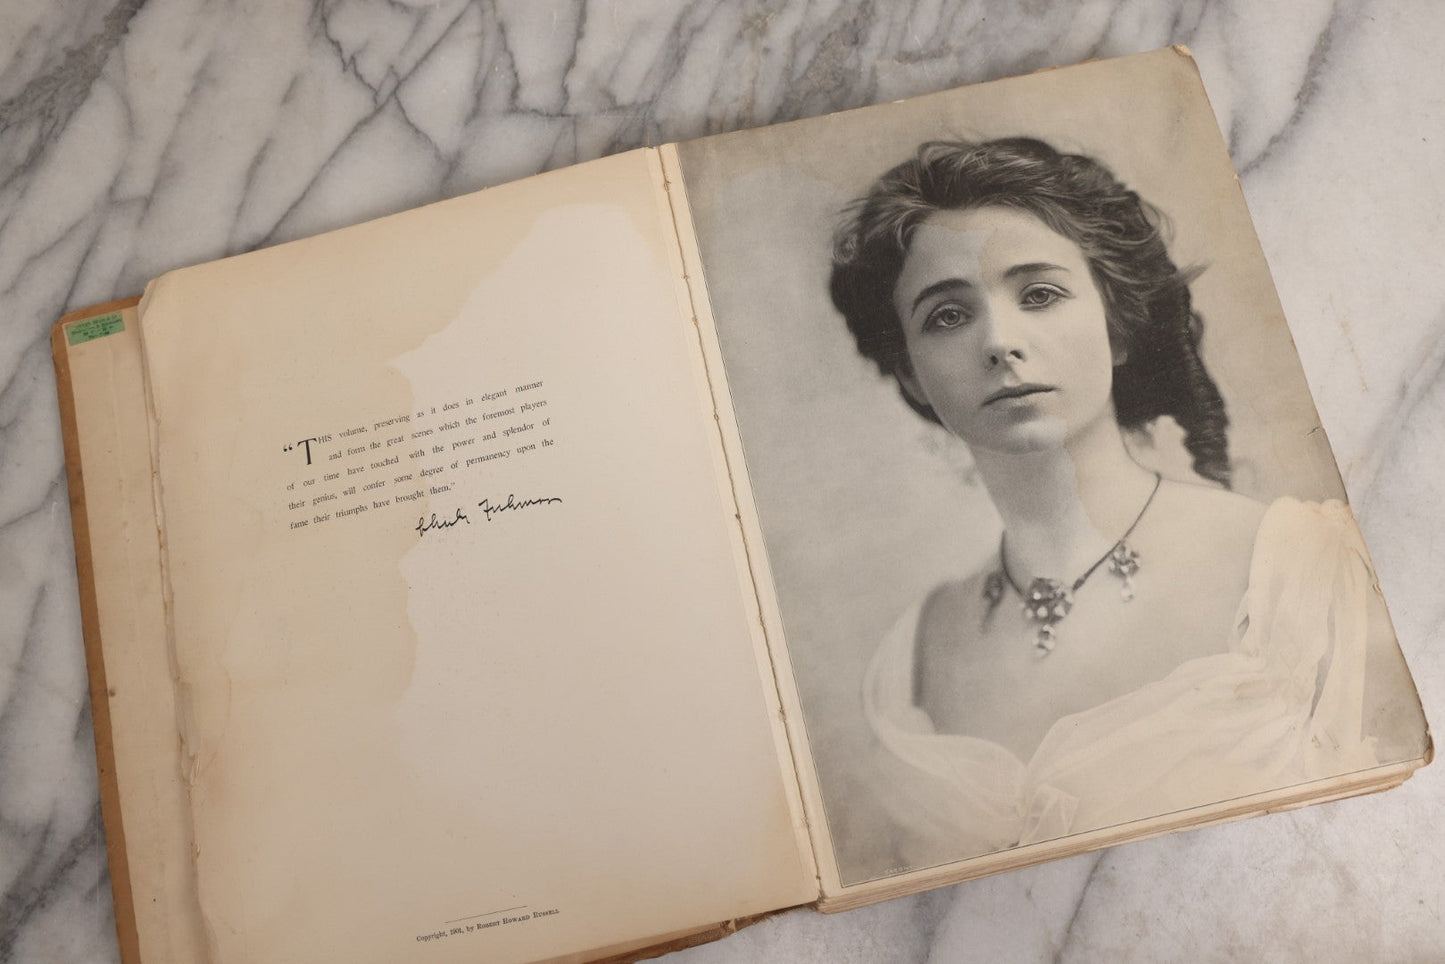 “THIS volume, preserving as it does in elegant manner
and form the great scenes which the foremost players
of our time have touched with the power and splendor of
their genius, will confer some degree of permanency upon the
fame their triumphs have brought them.”
Charles Frohman
Copyright, 1901, by ROBERT HOWARD RUSSELL